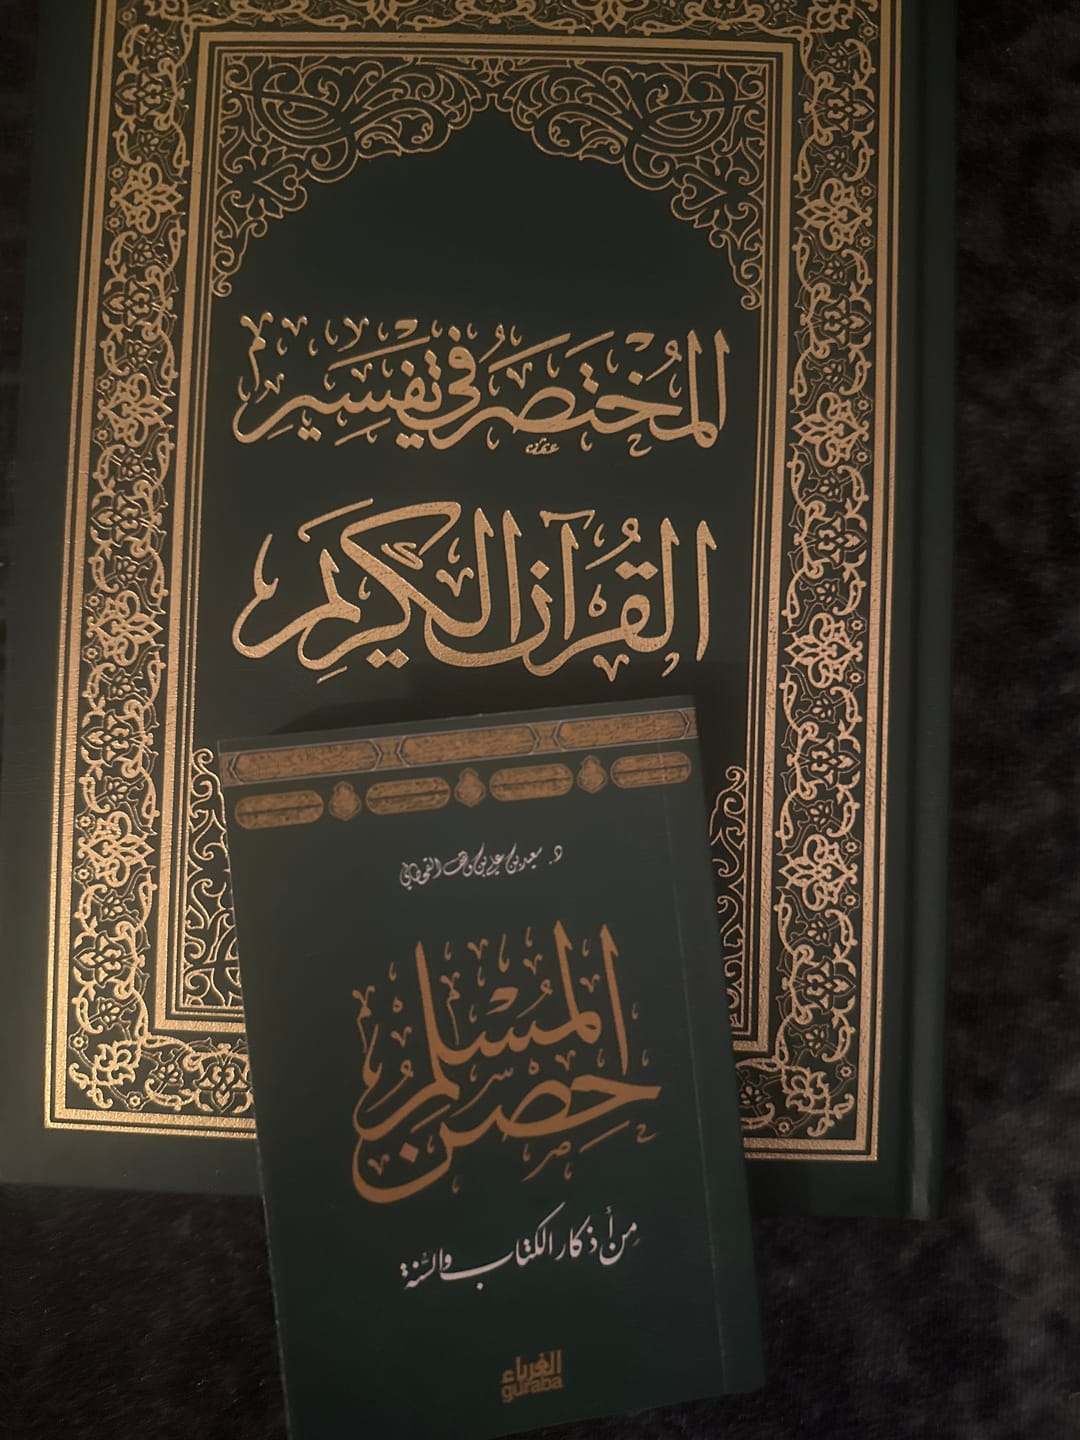 المُخْتَصَرُ في تَفْسِيرِ
القُرْآنِ الْكَرِيمِ
د. سعيد بن علي بن وهف القحطاني
حِصْنُ المُسْلِمِ
مِنْ أَذكار الكتاب والسُّنة
الغرباء
guraba